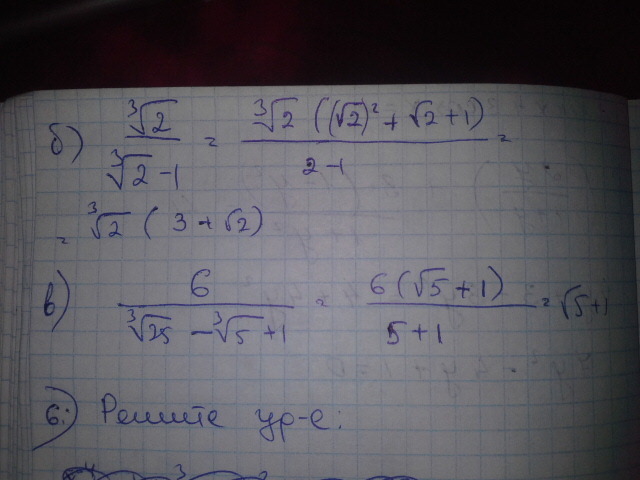 б) ∛2 / (∛2 - 1) = ∛2 ((√2)² + √2 + 1) / (2 - 1) =
= ∛2 (3 + √2)
в) 6 / (∛25 - ∛5 + 1) = 6 (√5 + 1) / (5 + 1) = √5 + 1
6:) Решите ур-е: